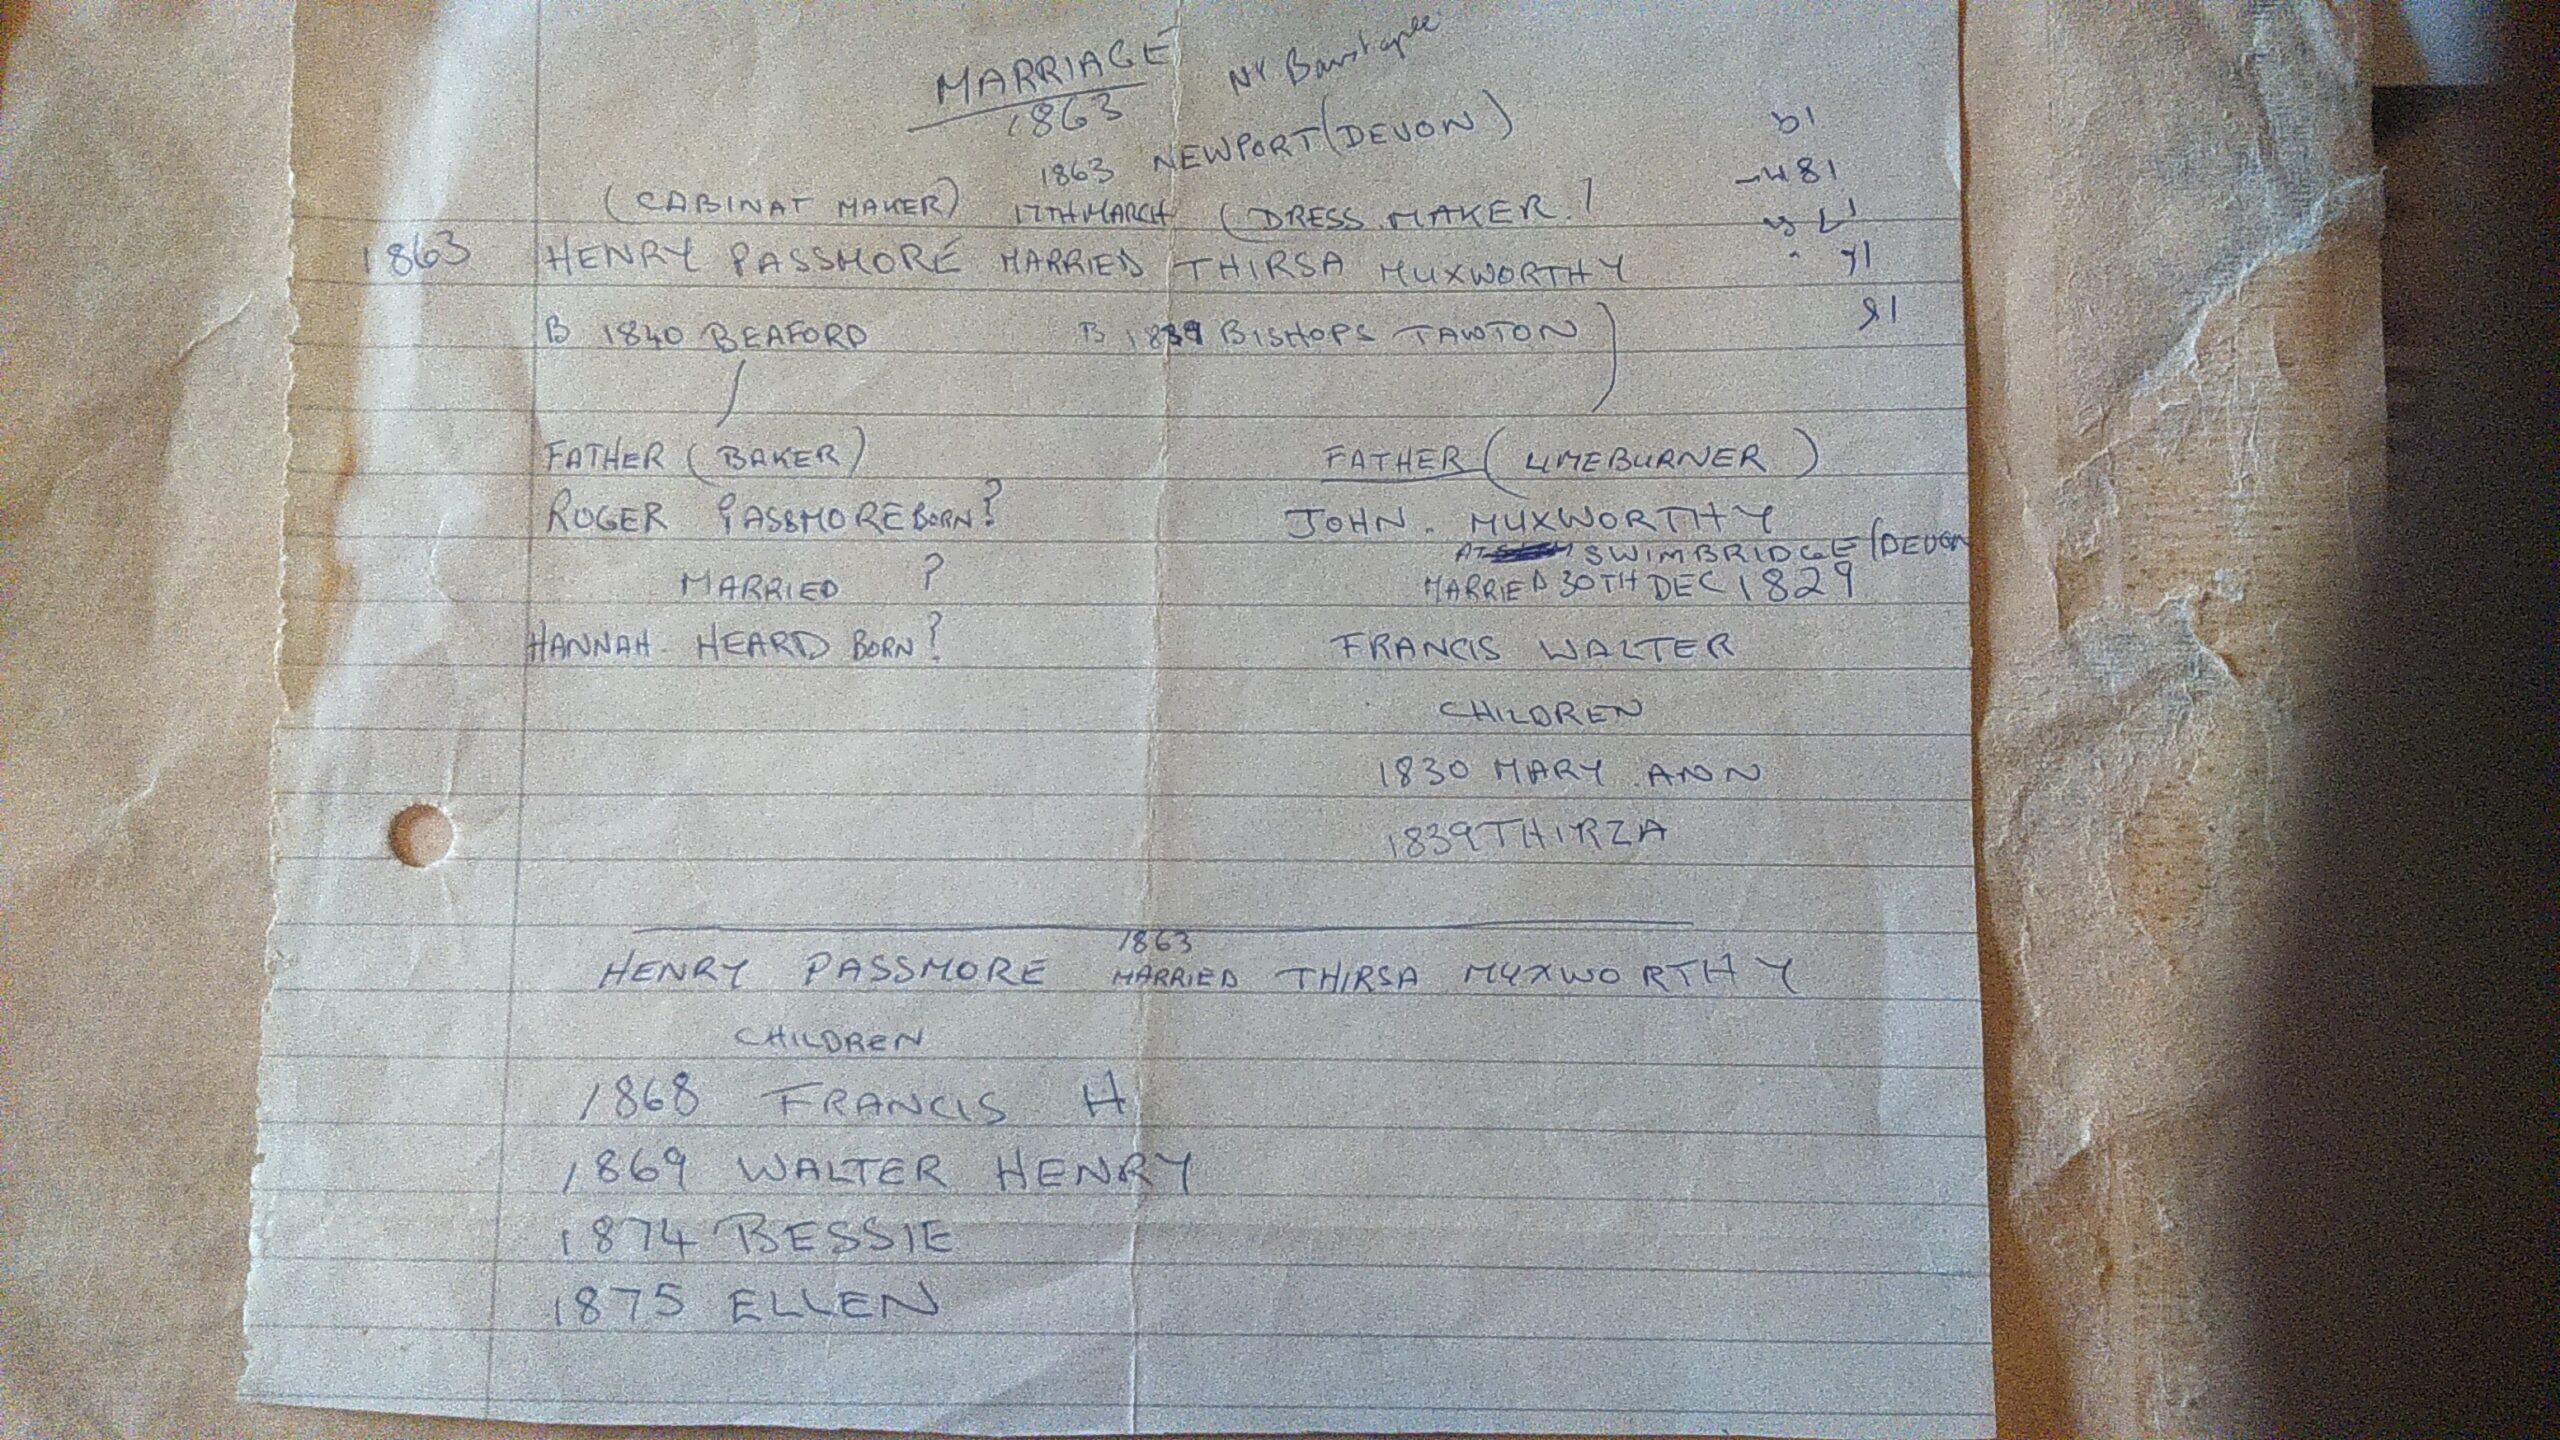 MARRIAGE
1863
Nr Barnstaple
1863 NEWPORT (DEVON)
(CABINAT MAKER) 17TH MARCH (DRESS MAKER.)
1863 HENRY PASSMORE MARRIED THIRSA MUXWORTHY
B 1840 BEAFORD B 1839 BISHOPS TAWTON
FATHER (BAKER) FATHER (LIMEBURNER)
ROGER PASSMORE BORN? JOHN. MUXWORTHY
AT SWIMBRIDGE (DEVON
MARRIED ? MARRIED 30TH DEC 1829
HANNAH. HEARD BORN? FRANCIS WALTER
CHILDREN
1830 MARY ANN
1839 THIRZA
1863
HENRY PASSMORE MARRIED THIRSA MUXWORTHY
CHILDREN
1868 FRANCIS H
1869 WALTER HENRY
1874 BESSIE
1875 ELLEN